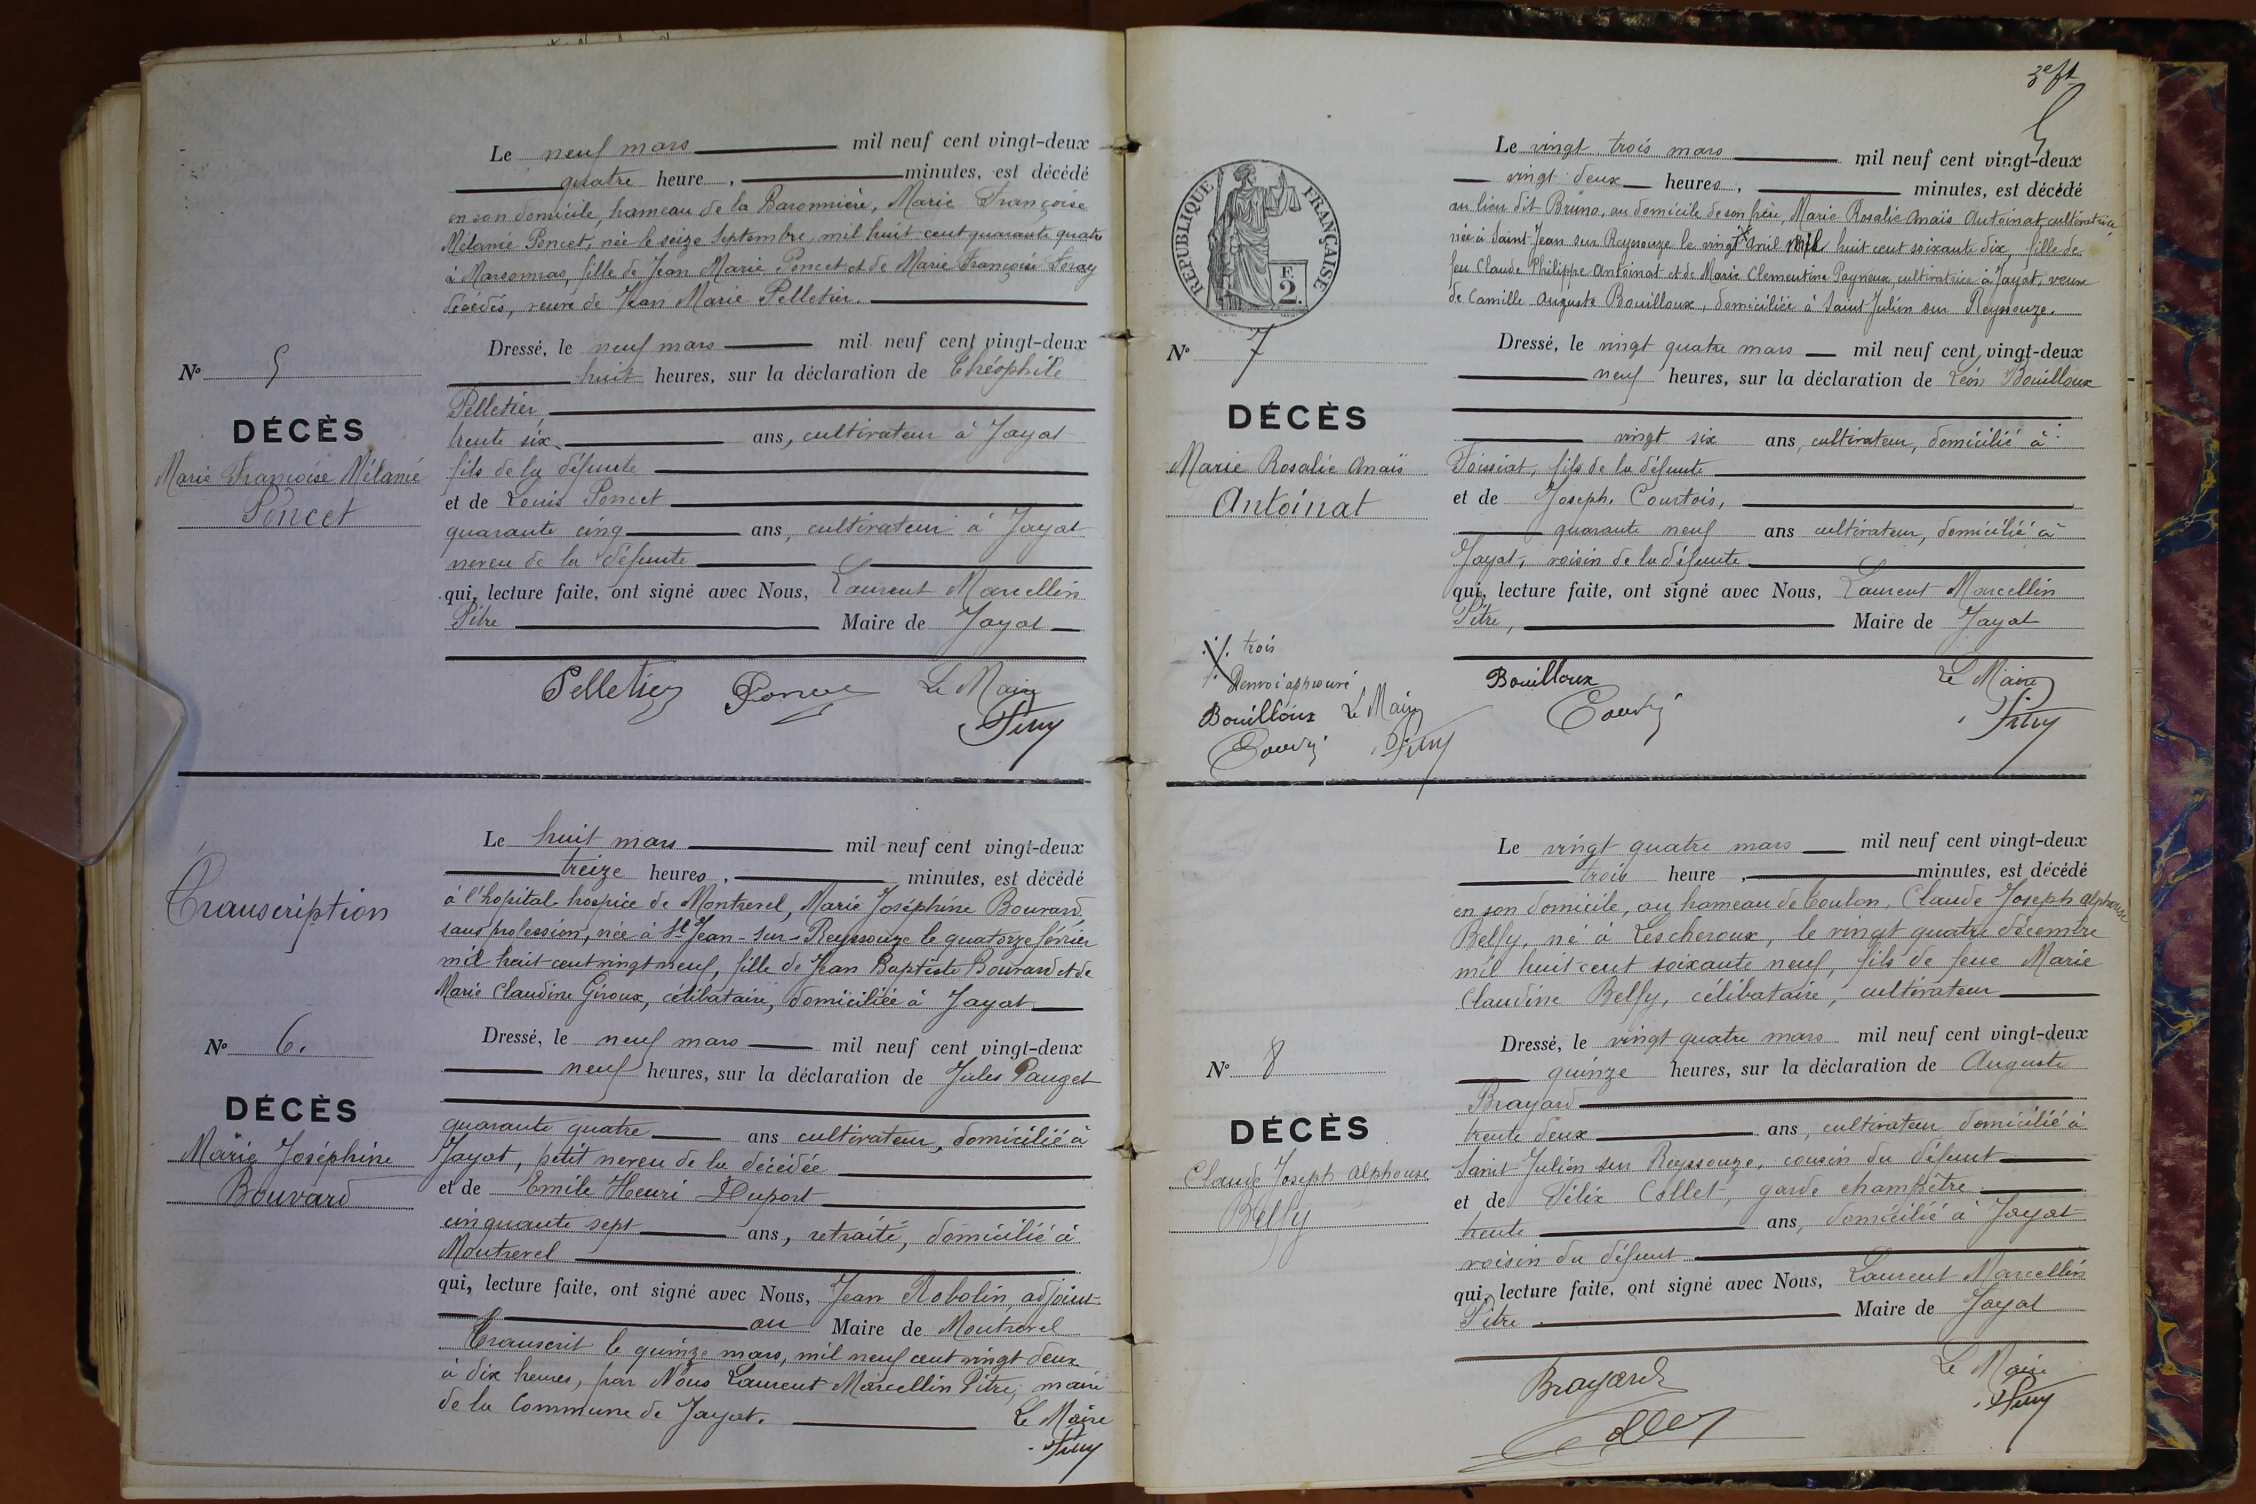 Le neuf mars mil neuf cent vingt-deux
quatre heure , minutes, est décédé
en son domicile, hameau de la Baronnière, Marie Françoise
Mélanie Poncet, née le seize Septembre mil huit cent quarante quatre
à Marsonnas, fille de Jean Marie Poncet et de Marie Françoise Foray
décédés, veuve de Jean Marie Pelletier.
Dressé, le neuf mars mil neuf cent vingt-deux
huit heures, sur la déclaration de Théophile
Pelletier
trente six ans, cultivateur à Jayat
fils de la défunte
et de Louis Poncet
quarante cinq ans, cultivateur à Jayat
neveu de la défunte
qui, lecture faite, ont signé avec Nous, Laurent Marcellin
Pitre Maire de Jayat
Pelletier Poncet Le Maire
Pitre
No 5
DÉCÈS
Marie Françoise Mélanie
Poncet
Transcription
No 6.
DÉCÈS
Marie Joséphine
Bouvard
Le huit mars mil neuf cent vingt-deux
treize heures , minutes, est décédé
à l'hopital hospice de Montrevel, Marie Joséphine Bouvard
sans profession, née à St Jean-sur-Reyssouze le quatorze février
mil huit cent vingt neuf, fille de Jean Baptiste Bouvard et de
Marie Claudine Giroux, célibataire, domiciliée à Jayat
Dressé, le neuf mars mil neuf cent vingt-deux
neuf heures, sur la déclaration de Jules Pauget
quarante quatre ans cultivateur, domicilié à
Jayat, petit neveu de la décédée
et de Emile Henri Dupont
cinquante sept ans, retraité, domicilié à
Montrevel
qui, lecture faite, ont signé avec Nous, Jean Robolin, adjoint
au Maire de Montrevel
Transcrit le quinze mars, mil neuf cent vingt deux
à dix heures, par Nous Laurent Marcellin Pitre, maire
de la Commune de Jayat.
Le Maire
Pitre
5
RÉPUBLIQUE FRANÇAISE
F.
2
No 7
DÉCÈS
Marie Rosalie Anaïs
Antoinat
./. trois
Renvoi approuvé
Bouilloux Le Maire
Courtois Pitre
Le vingt trois mars mil neuf cent vingt-deux
vingt deux heures, minutes, est décédé
au lieu dit Bruno, au domicile de son frère, Marie Rosalie Anaïs Antoinat, cultivatrice
née à Saint Jean sur Reyssouze le vingt ./. avril mil huit cent soixante dix, fille de
feu Claude Philippe Antoinat et de Marie Clementine Payneux, cultivatrice à Jayat, veuve
de Camille Auguste Bouilloux, domiciliée à Saint Julien sur Reyssouze.
Dressé, le vingt quatre mars mil neuf cent vingt-deux
neuf heures, sur la déclaration de Léon Bouilloux
vingt six ans, cultivateur, domicilié à
Foissiat, fils de la défunte
et de Joseph Courtois,
quarante neuf ans cultivateur, domicilié à
Jayat, voisin de la défunte
qui, lecture faite, ont signé avec Nous, Laurent Marcellin
Pitre, Maire de Jayat
Bouilloux Le Maire
Courtois Pitre
No 8
DÉCÈS
Claude Joseph Alphonse
Belfy
Le vingt quatre mars mil neuf cent vingt-deux
trois heure , minutes, est décédé
en son domicile, au hameau de Coulon, Claude Joseph Alphonse
Belfy, né à Lescheroux, le vingt quatre décembre
mil huit cent soixante neuf, fils de feue Marie
Claudine Belfy, célibataire, cultivateur
Dressé, le vingt quatre mars mil neuf cent vingt-deux
quinze heures, sur la déclaration de Auguste
Brayard
trente deux ans, cultivateur domicilié à
Saint Julien sur Reyssouze, cousin du défunt
et de Félix Collet, garde champêtre
trente ans, domicilié à Jayat
voisin du défunt
qui, lecture faite, ont signé avec Nous, Laurent Marcellin
Pitre Maire de Jayat
Brayard Le Maire
Collet Pitre